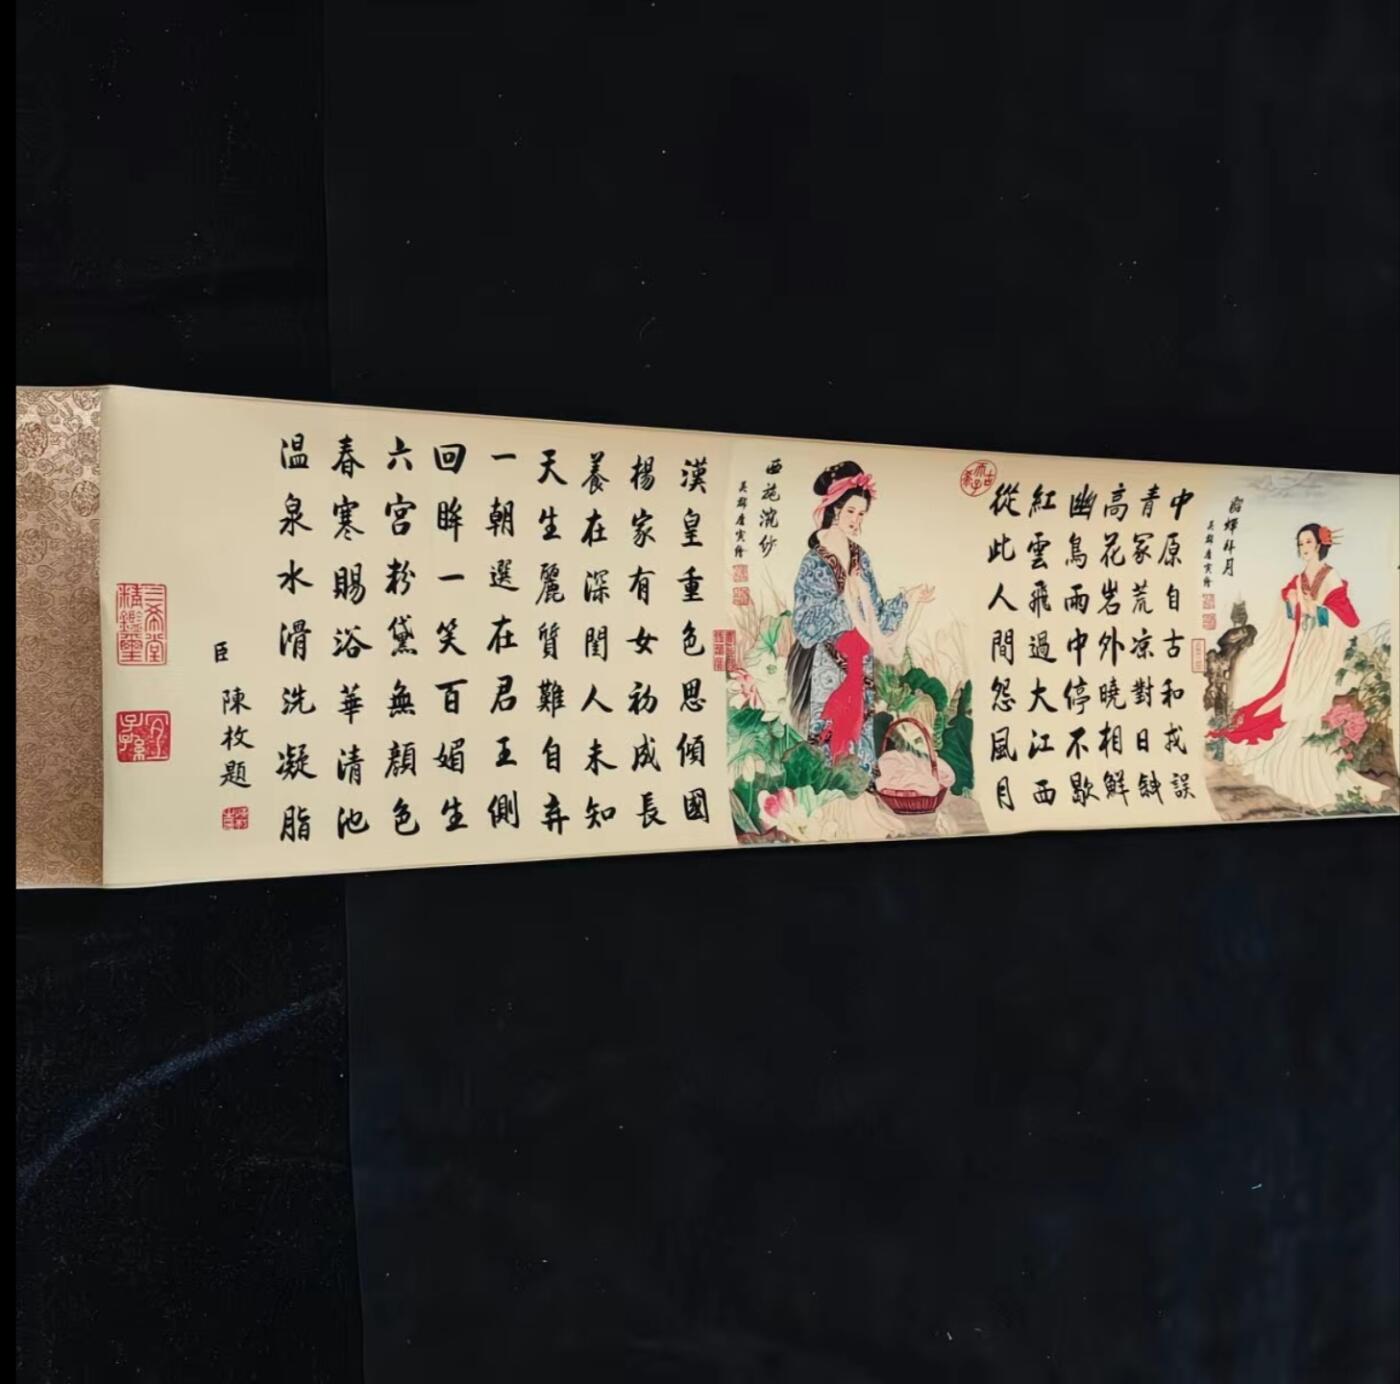 貂蟬拜月
吳郡唐寅繪
中原自古和戎誤
青冢荒凉對日斜
高花岩外曉相鮮
幽鳥雨中停不歇
紅雲飛過大江西
從此人間怨風月
古希天子
西施浣紗
吳郡唐寅繪
漢皇重色思傾國
楊家有女初成長
養在深閨人未知
天生麗質難自弃
一朝選在君王側
回眸一笑百媚生
六宮粉黛無顏色
春寒賜浴華清池
温泉水滑洗凝脂
臣 陳枚題
三希堂精鑑璽
宜子孫